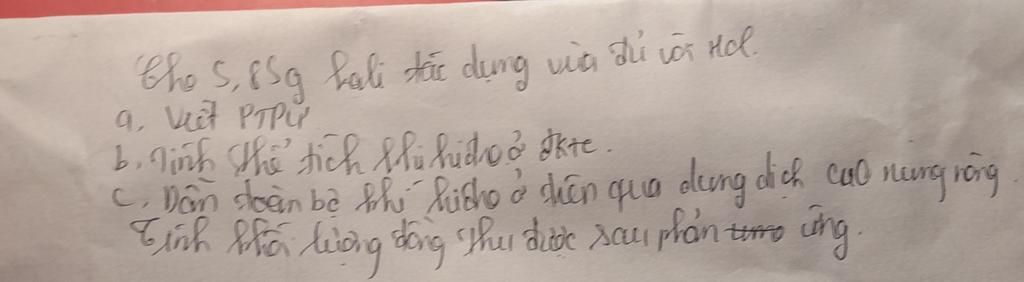 Cho 5,85g kali tác dụng vừa đủ với HCl.
a, Viết PTPƯ
b, Tính thể tích khí hiđro ở đktc.
c, Dẫn toàn bộ khí hiđro ở trên qua dung dịch CuO nung nóng.
Tính khối lượng đồng thu được sau phản ứng.